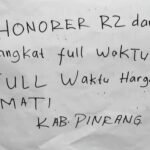 HONORER R2 dan
angkat full WAKTU
FULL Waktu Harga
MATI
KAB. PINRANG